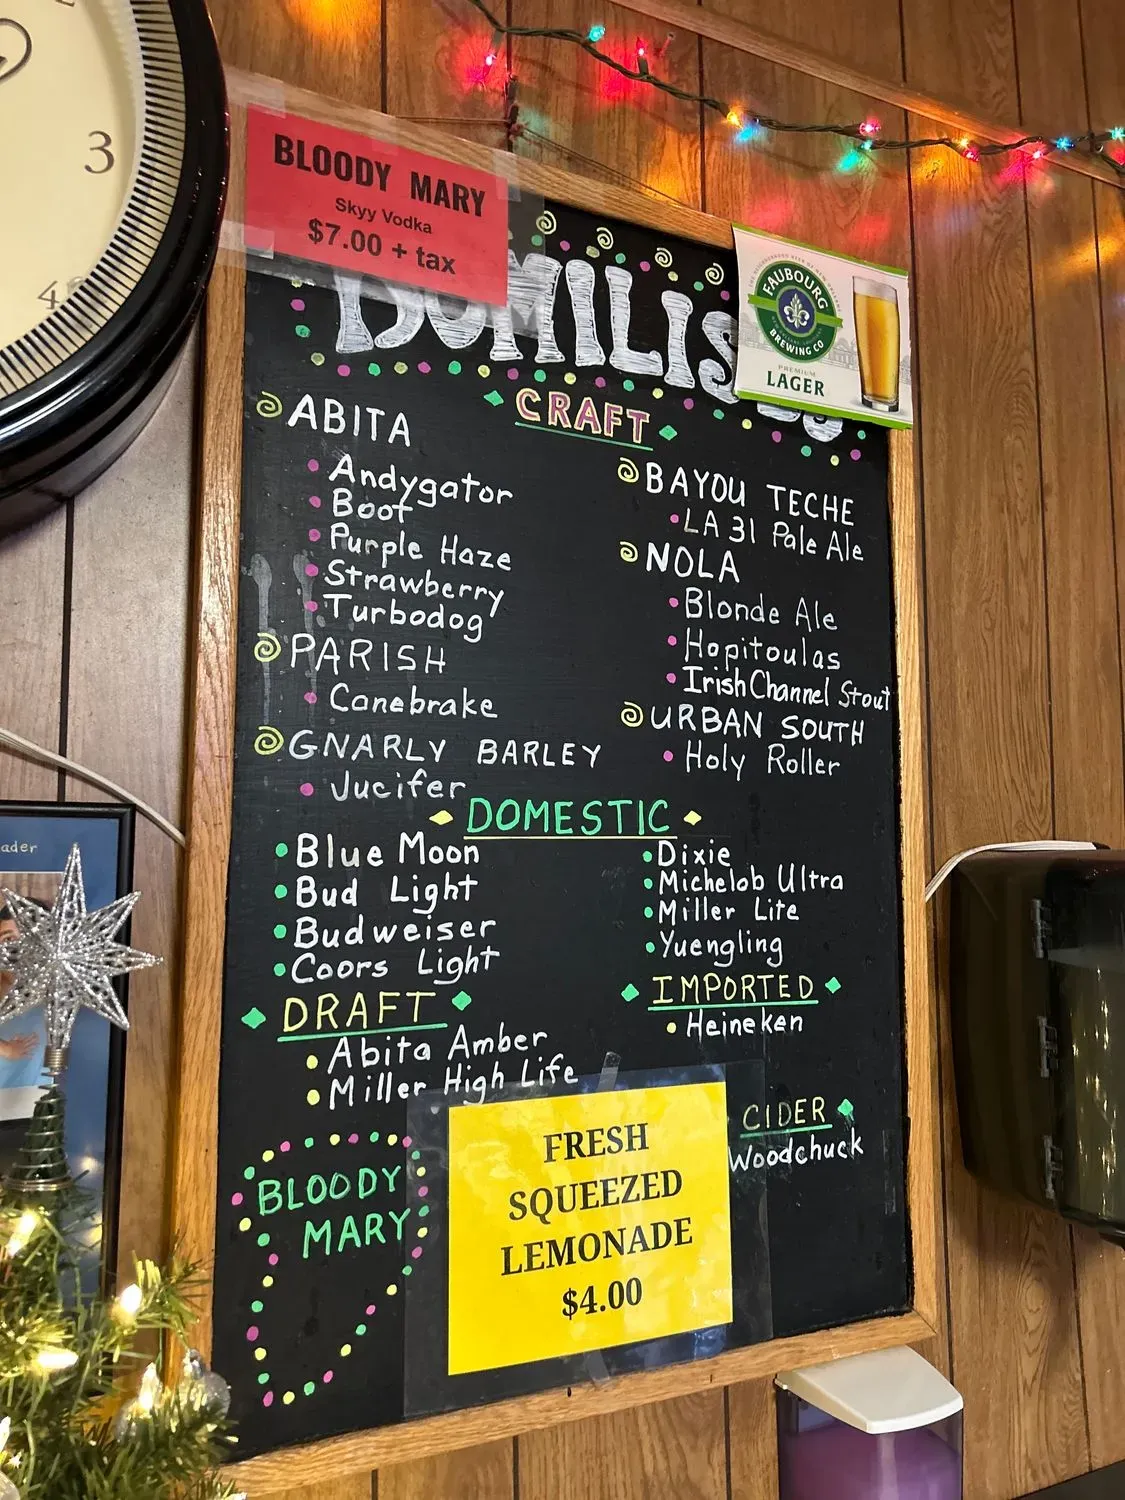 3
4
ader
BLOODY MARY
Skyy Vodka
$7.00 + tax
DOMILIS
FAUBOURG
BREWING CO
PREMIUM
LAGER
CRAFT
ABITA
Andygator
Boot
Purple Haze
Strawberry
Turbodog
PARISH
Canebrake
GNARLY BARLEY
Jucifer
BAYOU TECHE
LA 31 Pale Ale
NOLA
Blonde Ale
Hopitoulas
Irish Channel Stout
URBAN SOUTH
Holy Roller
DOMESTIC
Blue Moon
Bud Light
Budweiser
Coors Light
Dixie
Michelob Ultra
Miller Lite
Yuengling
DRAFT
Abita Amber
Miller High Life
IMPORTED
Heineken
CIDER
Woodchuck
BLOODY
MARY
FRESH
SQUEEZED
LEMONADE
$4.00